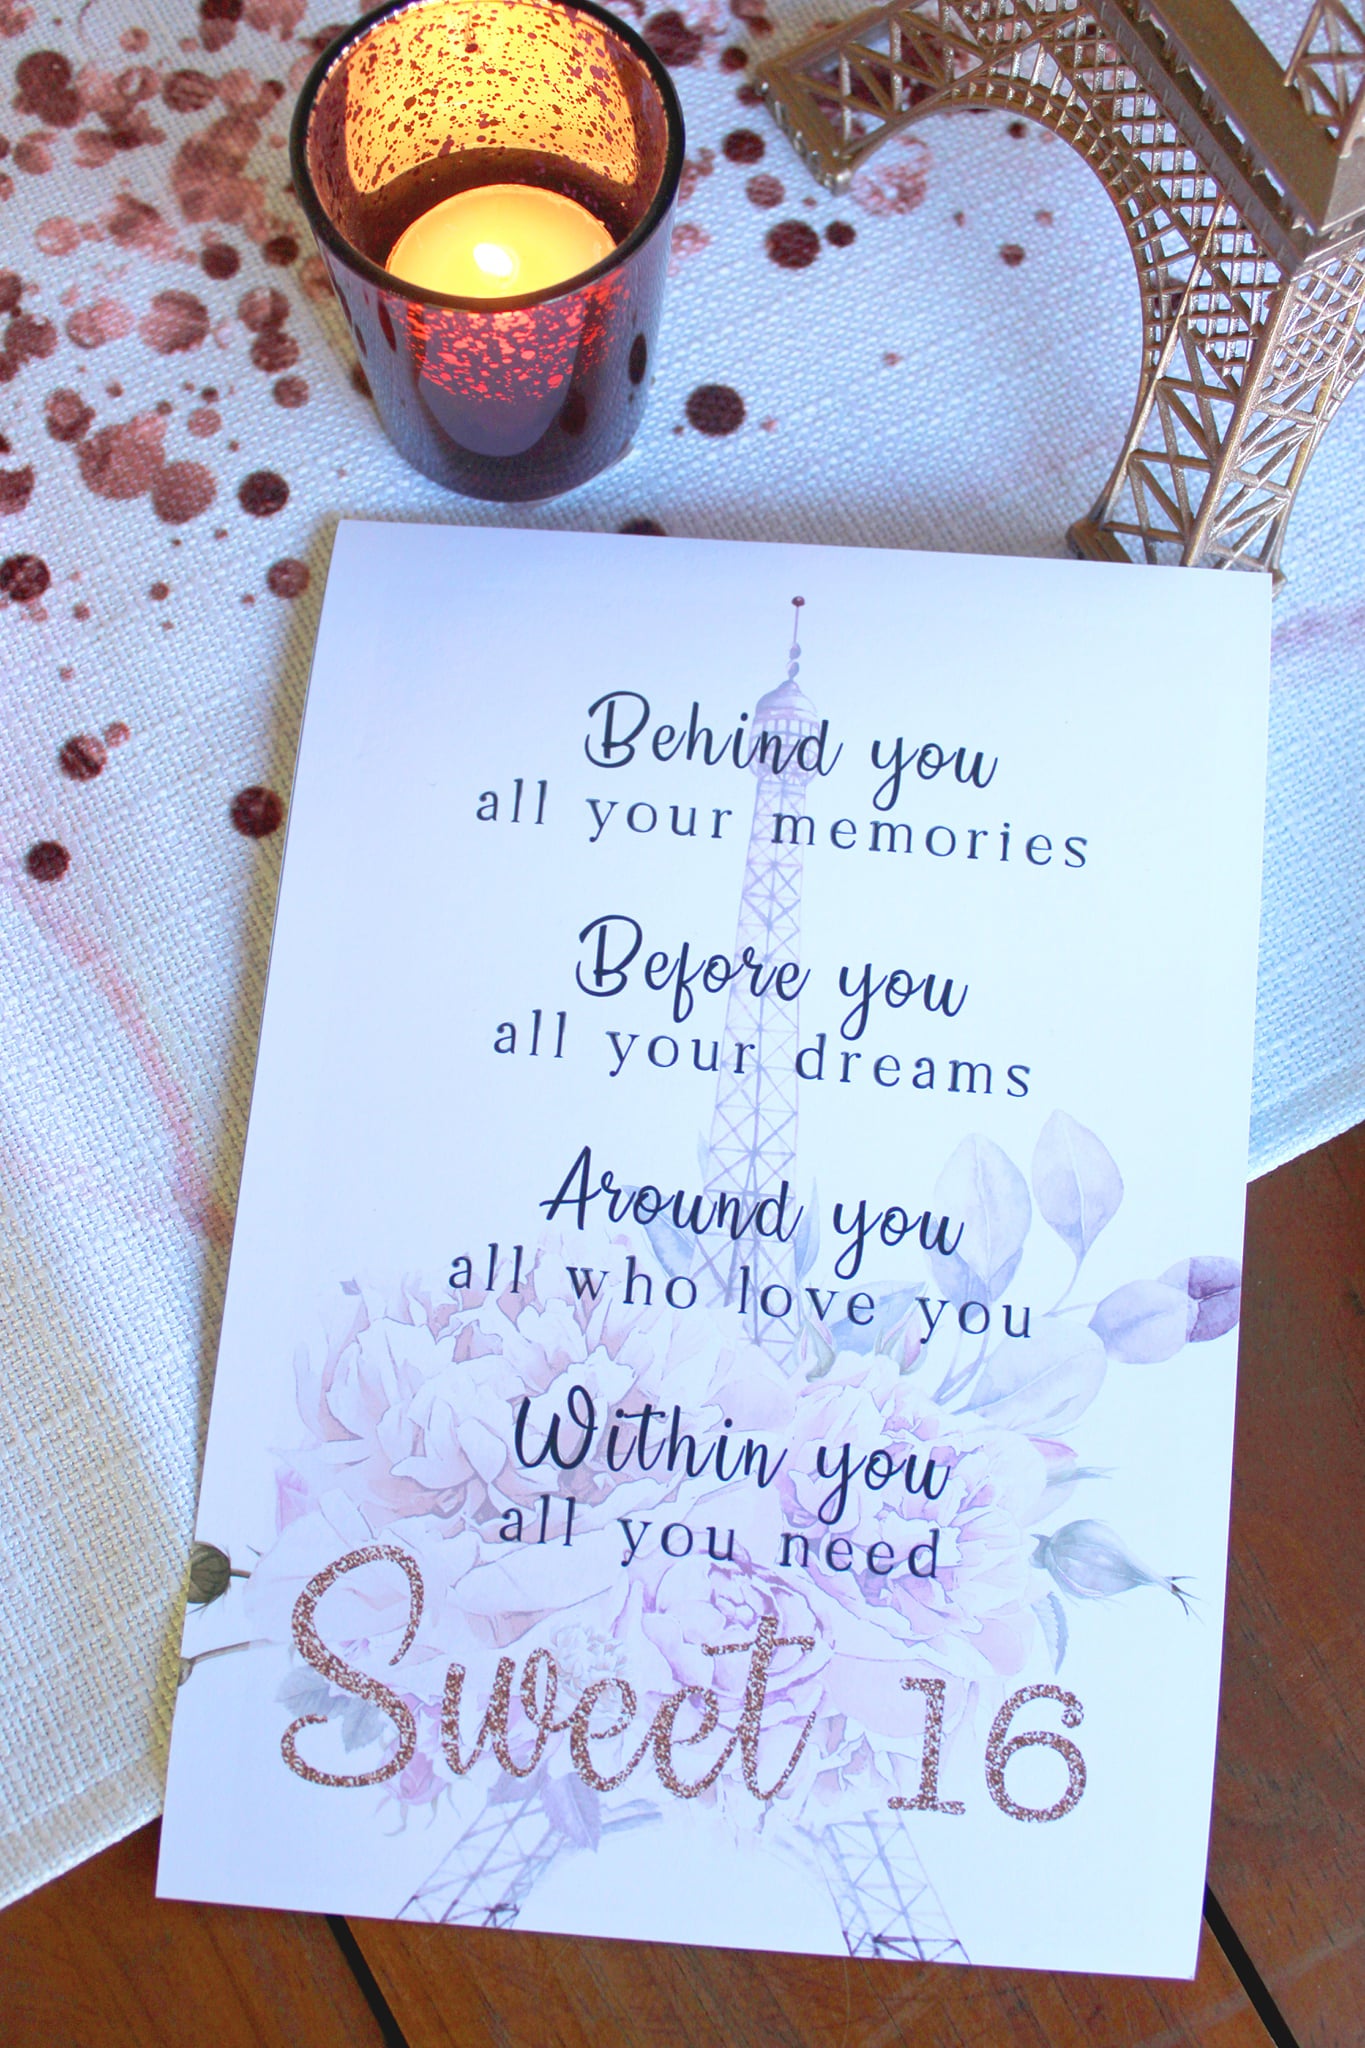 Behind you
all your memories
Before you
all your dreams
Around you
all who love you
Within you
all you need
Sweet 16